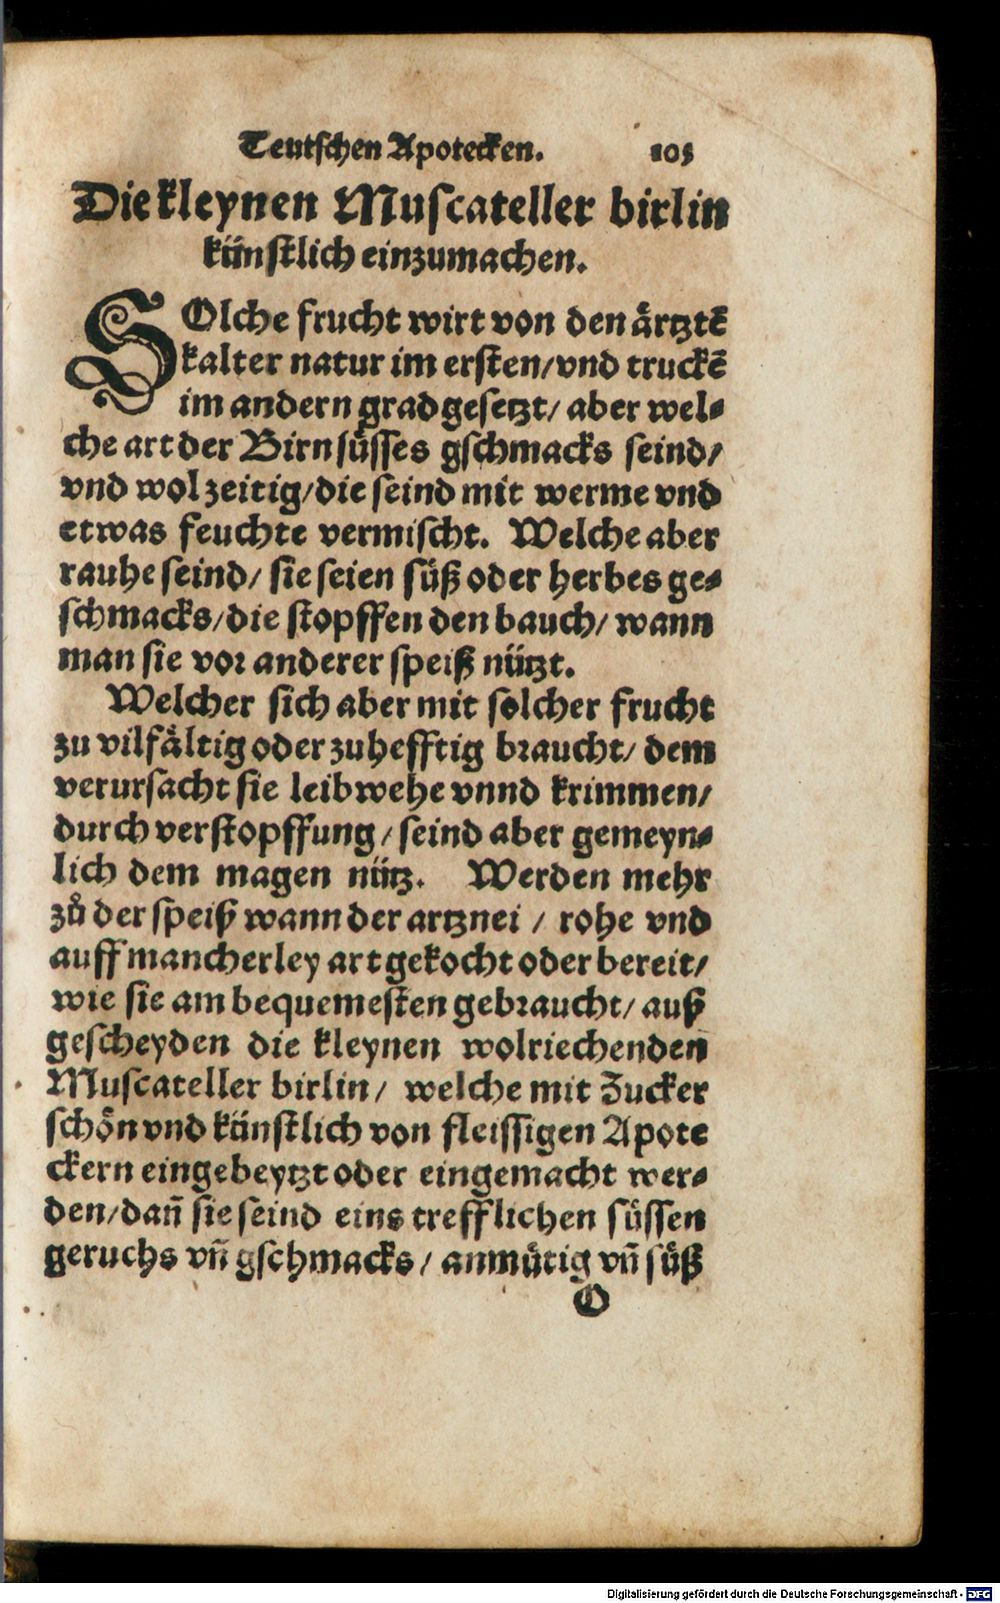 Teutschen Apotecken. 105
Die kleynen Muscateller birlin
künstlich einzumachen.
SOlche frucht wirt von den ärtztē
kalter natur im ersten/vnd truckē
im andern grad gesetzt/ aber wel⸗
che art der Birn süsses gschmacks seind/
vnd wol zeitig/die seind mit werme vnd
etwas feuchte vermischt. Welche aber
rauhe seind/ sie seien süß oder herbes ge⸗
schmacks/die stopffen den bauch/ wann
man sie vor anderer speiß nützt.
Welcher sich aber mit solcher frucht
zu vilfältig oder zu hefftig braucht/ dem
verursacht sie leibwehe vnnd krimmen/
durch verstopffung/ seind aber gemeyn⸗
lich dem magen nütz. Werden mehr
zů der speiß wann der artznei / rohe vnd
auff mancherley art gekocht oder bereit/
wie sie am bequemesten gebraucht/ auß
gescheyden die kleynen wolriechenden
Muscateller birlin/ welche mit Zucker
schön vnd künstlich von fleissigen Apote
ckern eingebeytzt oder eingemacht wer⸗
den/dañ sie seind eins trefflichen süssen
geruchs vñ gschmacks/ anmütig vñ süß
O
Digitalisierung gefördert durch die Deutsche Forschungsgemeinschaft - DFG